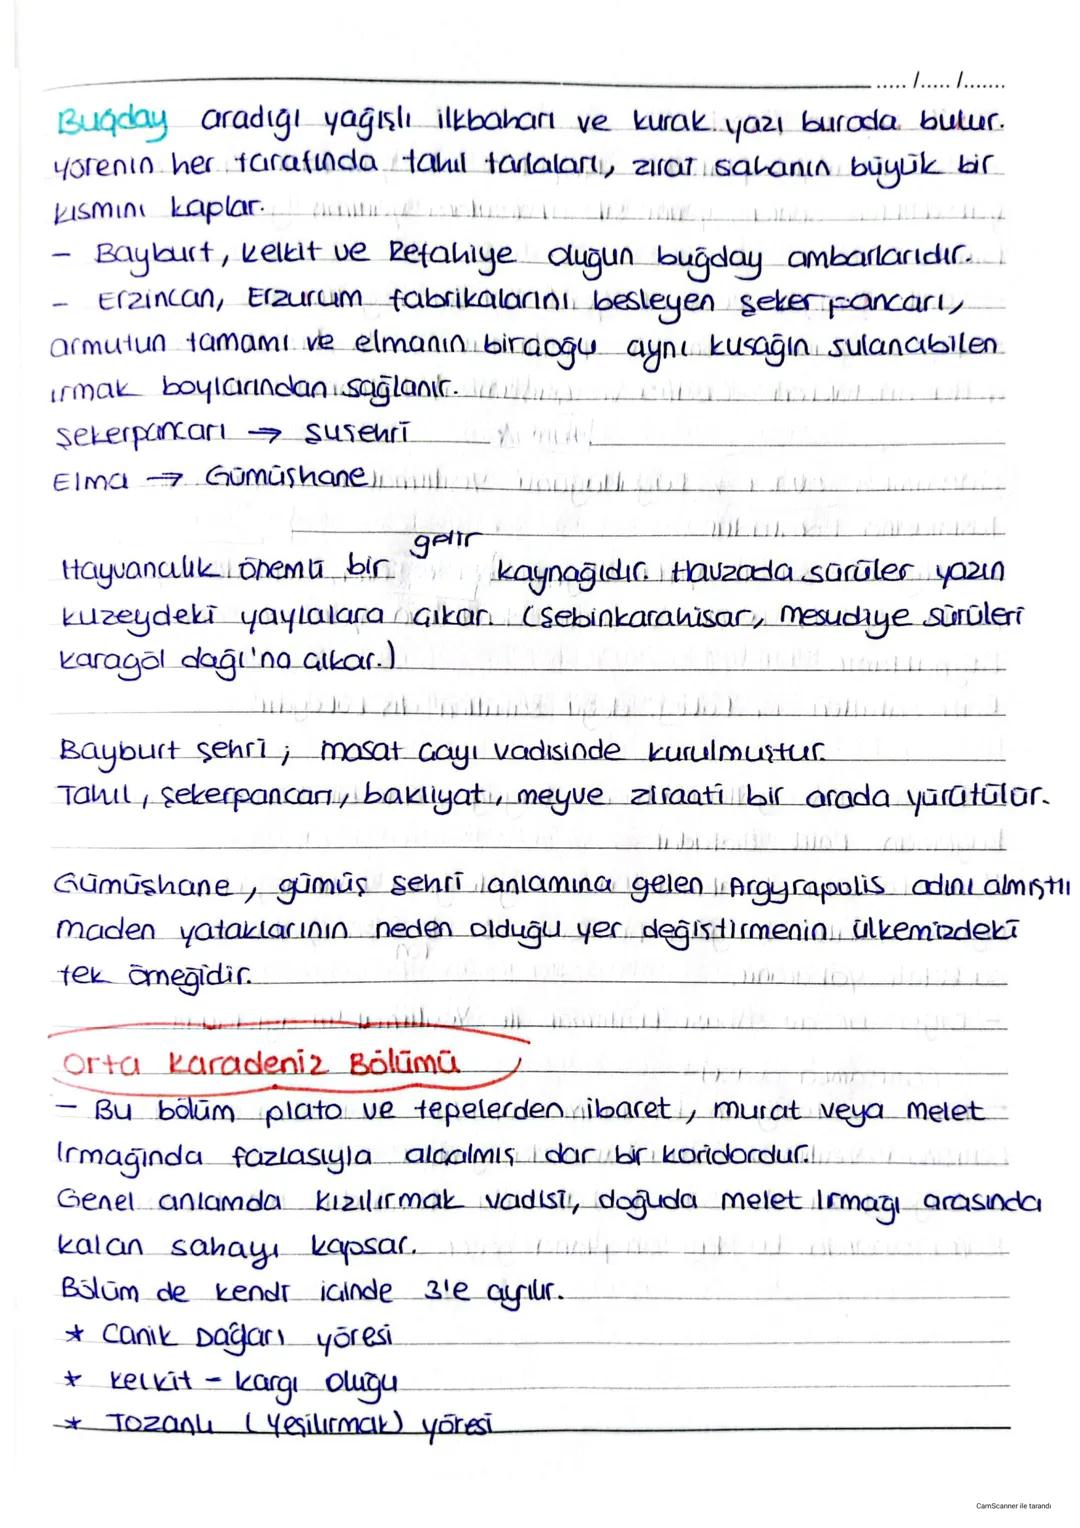 ...../...../.......
Buğday aradığı yağışlı ilkbaharı ve kurak yazı burada bulur.
yörenin her tarafında tahıl tarlaları, zirai sahanın büyük bir
kısmını kaplar.
- Bayburt, Kelkit ve Refahiye oluğun buğday ambarlarıdır.
- Erzincan, Erzurum fabrikalarını besleyen şeker pancarı,
armutun tamamı ve elmanın birçoğu aynı kuşağın sulanabilen
ırmak boylarından sağlanır.
Şekerpancarı → Suşehri
Elma → Gümüşhane
Hayvancılık önemli bir gelir kaynağıdır. Havzada sürüler yazın
kuzeydeki yaylalara çıkar. (Şebinkarahisar, Mesudiye sürüleri
Karagöl dağı'na çıkar.)
Bayburt şehri; masat çayı vadisinde kurulmuştur.
Tahıl, şekerpancarı, bakliyat, meyve ziraati bir arada yürütülür.
Gümüşhane, gümüş şehri anlamına gelen Argyrapolis adını almıştı
maden yataklarının neden olduğu yer değiştirmenin ülkemizdeki
tek örneğidir.
Orta Karadeniz Bölümü
- Bu bölüm plato ve tepelerden ibaret, murat veya melet
Irmağında fazlasıyla alçalmış dar bir koridordur.
Genel anlamda Kızılırmak vadisi, doğuda melet Irmağı arasında
kalan sahayı kapsar.
Bölüm de kendi içinde 3'e ayrılır.
* Canik Dağları yöresi
* Kelkit - Kargı oluğu
* Tozanlı (Yeşilırmak) yöresi
CamScanner ile tarandı